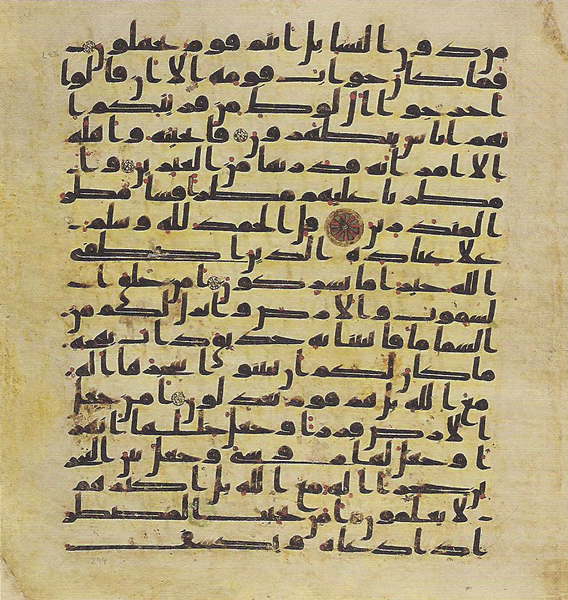 من دون النسا بل انتم قوم تجهلون
فما كان جواب قومه الا ان قالوا
اخرجوا ال لوط من قريتكم ا
نهم اناس يتطهرون فانجينه واهله
الا امراته قدرنها من الغبرين وا
مطرنا عليهم مطرا فسا مطر
المنذرين قل الحمد لله وسلم
علا عباده الذين اصطفى
الله خير اما يشركون امن خلق ا
لسموت والارض وانزل لكم من
السما ما فانبتنا به حدائق ذات بهجة
ما كان لكم ان تنبتوا شجرها اله
مع الله بل هم قوم يعدلون امن جعل
الارض قررا وجعل خللها انهر
ا وجعل لها روسي وجعل بين البحر
ين حاجزا اله مع الله بل اكثرهم
لا يعلمون امن يجيب المضطر
اذا دعاه ويكشف